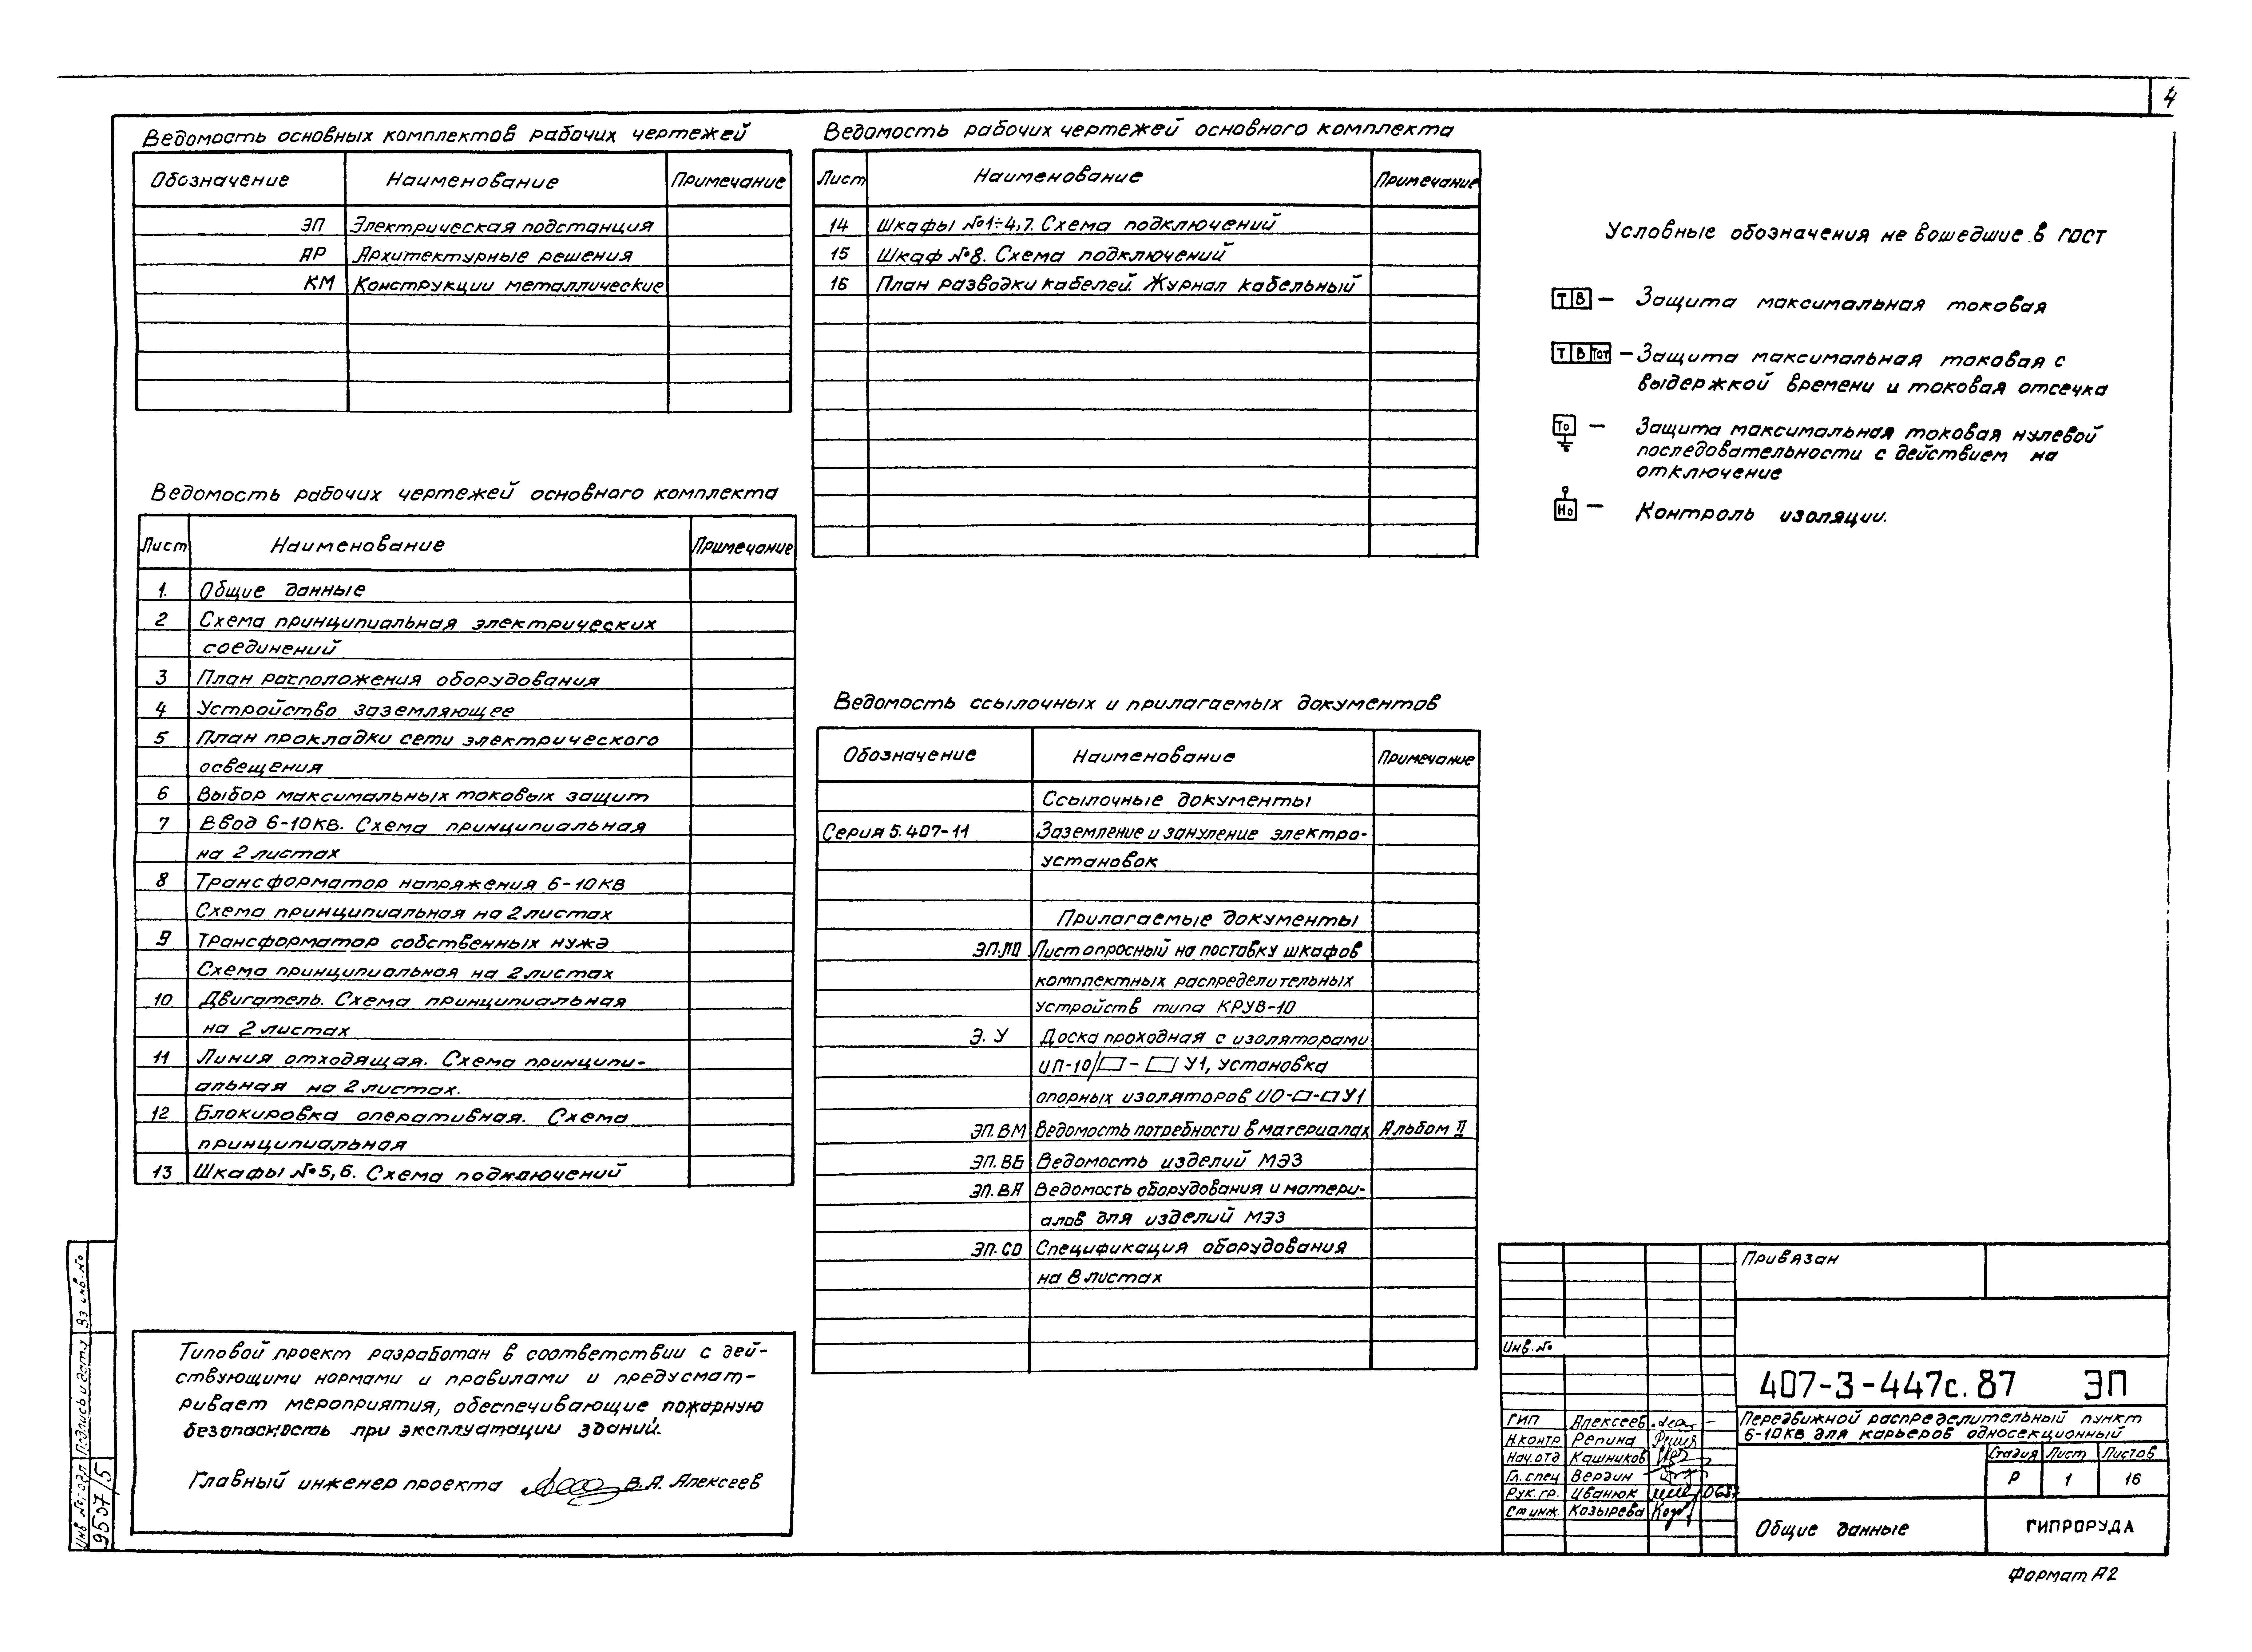 4
Ведомость основных комплектов рабочих чертежей
Обозначение Наименование Примечание
ЭП Электрическая подстанция
АР Архитектурные решения
КМ Конструкции металлические
Ведомость рабочих чертежей основного комплекта
Лист Наименование Примечание
1. Общие данные
2 Схема принципиальная электрических
соединений
3 План расположения оборудования
4 Устройство заземляющее
5 План прокладки сети электрического
освещения
6 Выбор максимальных токовых защит
7 Ввод 6-10кв. Схема принципиальная
на 2 листах
8 Трансформатор напряжения 6-10кв
Схема принципиальная на 2 листах
9 Трансформатор собственных нужд
Схема принципиальная на 2 листах
10 Двигатель. Схема принципиальная
на 2 листах
11 Линия отходящая. Схема принципи-
альная на 2 листах.
12 Блокировка оперативная. Схема
принципиальная
13 Шкафы №5,6. Схема подключений
Типовой проект разработан в соответствии с дей-
ствующими нормами и правилами и предусмат-
ривает мероприятия, обеспечивающие пожарную
безопасность при эксплуатации зданий.
Главный инженер проекта В.А. Алексеев
Ведомость рабочих чертежей основного комплекта
Лист Наименование Примечание
14 Шкафы №1÷4,7. Схема подключений
15 Шкаф №8. Схема подключений
16 План разводки кабелей. Журнал кабельный
Ведомость ссылочных и прилагаемых документов
Обозначение Наименование Примечание
Ссылочные документы
Серия 5.407-11 Заземление и зануление электро-
установок
Прилагаемые документы
ЭП.ЛО Лист опросный на поставку шкафов
комплектных распределительных
устройств типа КРУВ-10
Э. У Доска проходная с изоляторами
ИП-10/▭-▭ У1, установка
опорных изоляторов ИО-▭-▭У1
ЭП.ВМ Ведомость потребности в материалах Альбом II
ЭП.ВБ Ведомость изделий МЭЗ
ЭП.ВА Ведомость оборудования и матери-
алов для изделий МЭЗ
ЭП.СО Спецификация оборудования
на 8 листах
Условные обозначения не вошедшие в ГОСТ
Т В — Защита максимальная токовая
Т В Тот — Защита максимальная токовая с
выдержкой времени и токовая отсечка
То — Защита максимальная токовая нулевой
последовательности с действием на
отключение
Но — Контроль изоляции.
Привязан
Инв.№
407-3-447с.87 ЭП
ГИП Алексеев
Н.контр Репина
Нач.отд Кашников
Гл.спец Вердин
Рук.гр. Иванюк 0687
Ст инж. Козырева
Передвижной распределительный пункт
6-10кв для карьеров односекционный
Стадия Лист Листов
Р 1 16
Общие данные
ГИПРОРУДА
Формат А2
Инв №подл Подпись и дата Вз инв.№
9537/5